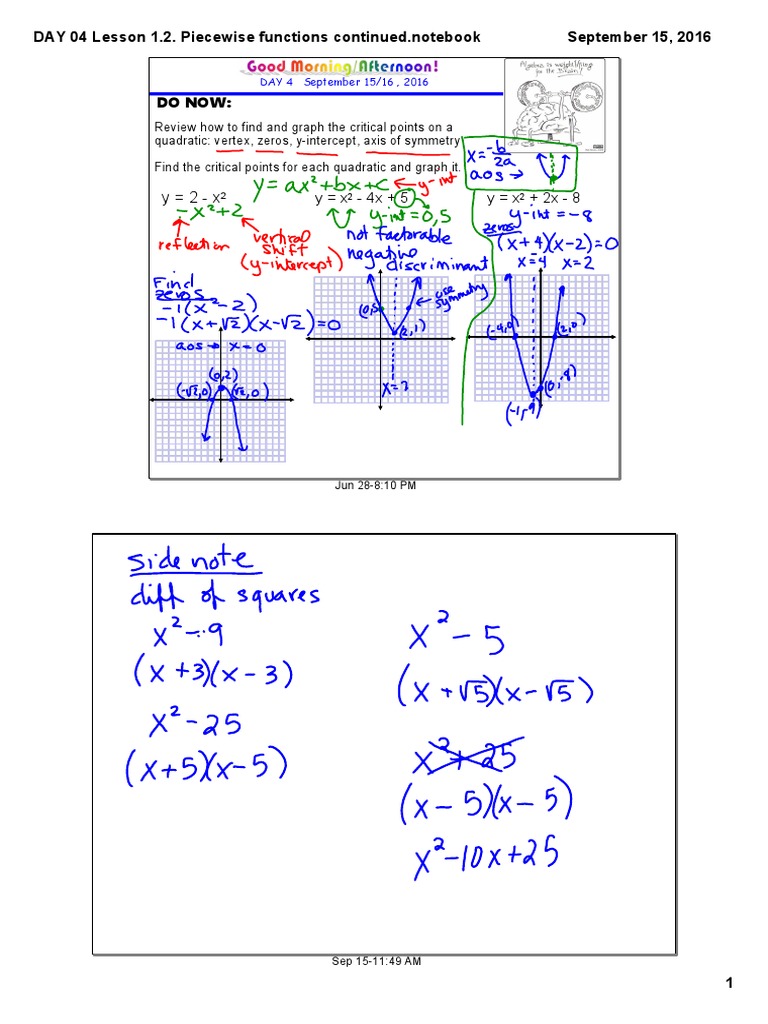 DAY 04 Lesson 1.2. Piecewise functions continued.notebook
September 15, 2016
Good Morning/Afternoon!
DAY 4 September 15/16 , 2016
Algebra is weightlifting
for the Brain!
DO NOW:
Review how to find and graph the critical points on a
quadratic: vertex, zeros, y-intercept, axis of symmetry
x = -b/2a
aos →
Find the critical points for each quadratic and graph it.
y = ax² + bx + c ← y-int
y = 2 - x²
- x² + 2
reflection
vertical
shift
(y-intercept)
Find
zeros
-1(x² - 2)
-1(x + √2)(x - √2) = 0
aos → x = 0
(0,2)
(-√2,0)
(√2,0)
y = x² - 4x + 5
y-int = 0,5
not factorable
negative
discriminant
use
symmetry
(0,5)
(2,1)
x = 2
y = x² + 2x - 8
y-int = -8
zeros
(x + 4)(x - 2) = 0
x = 4 x = 2
(-4,0)
(2,0)
(0,-8)
(-1,-9)
Jun 28-8:10 PM
side note
diff of squares
x² - 9
(x + 3)(x - 3)
x² - 25
(x + 5)(x - 5)
x² - 5
(x + √5)(x - √5)
x² + 25
(x - 5)(x - 5)
x² - 10x + 25
Sep 15-11:49 AM
1